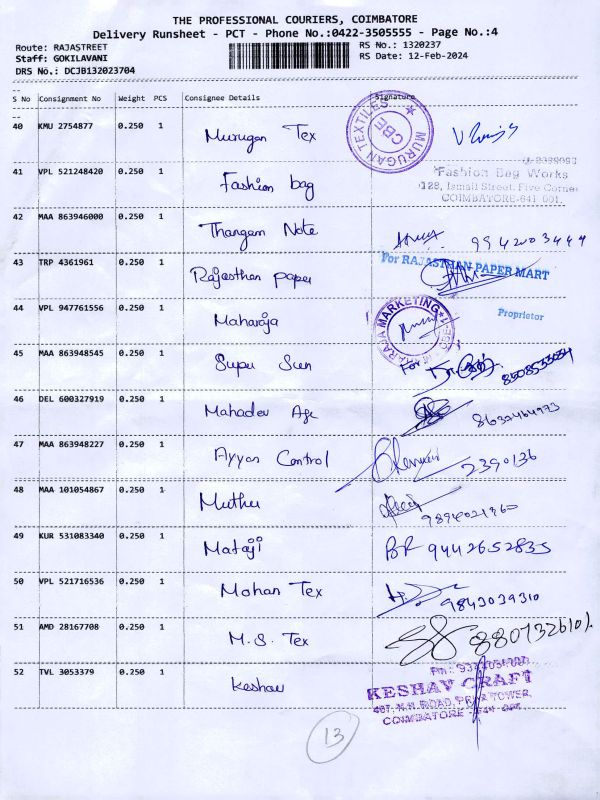 THE PROFESSIONAL COURIERS, COIMBATORE
Delivery Runsheet - PCT - Phone No.:0422-3505555 - Page No.:4
Route: RAJASTREET RS No.: 1320237
Staff: GOKILAVANI RS Date: 12-Feb-2024
DRS No.: DCJB132023704
S No Consignment No Weight PCS Consignee Details Signature
40 KMU 2754877 0.250 1 Murugan Tex
MURUGAN TEXTILES CBE
41 VPL 521248420 0.250 1 Fashion bag
Fashion Bag Works
128, Ismail Street, Five Corner
COIMBATORE-641 001.
42 MAA 863946000 0.250 1 Thangam Note
43 TRP 4361961 0.250 1 Rajasthan paper
For RAJASTHAN PAPER MART
Proprietor
44 VPL 947761556 0.250 1 Maharaja
MARKETING
45 MAA 863948545 0.250 1 Super Sun
For
46 DEL 600327919 0.250 1 Mahadev Age
47 MAA 863948227 0.250 1 Ayyan Control 2390136
48 MAA 101054867 0.250 1 Muthu
49 KUR 531083340 0.250 1 Mataji BR 9442652835
50 VPL 521716536 0.250 1 Mohan Tex 9843039310
51 AMD 28167708 0.250 1 M.S. Tex
52 TVL 3053379 0.250 1 Keshav
KESHAV CRAFT
TOWER,
COIMBATORE
13